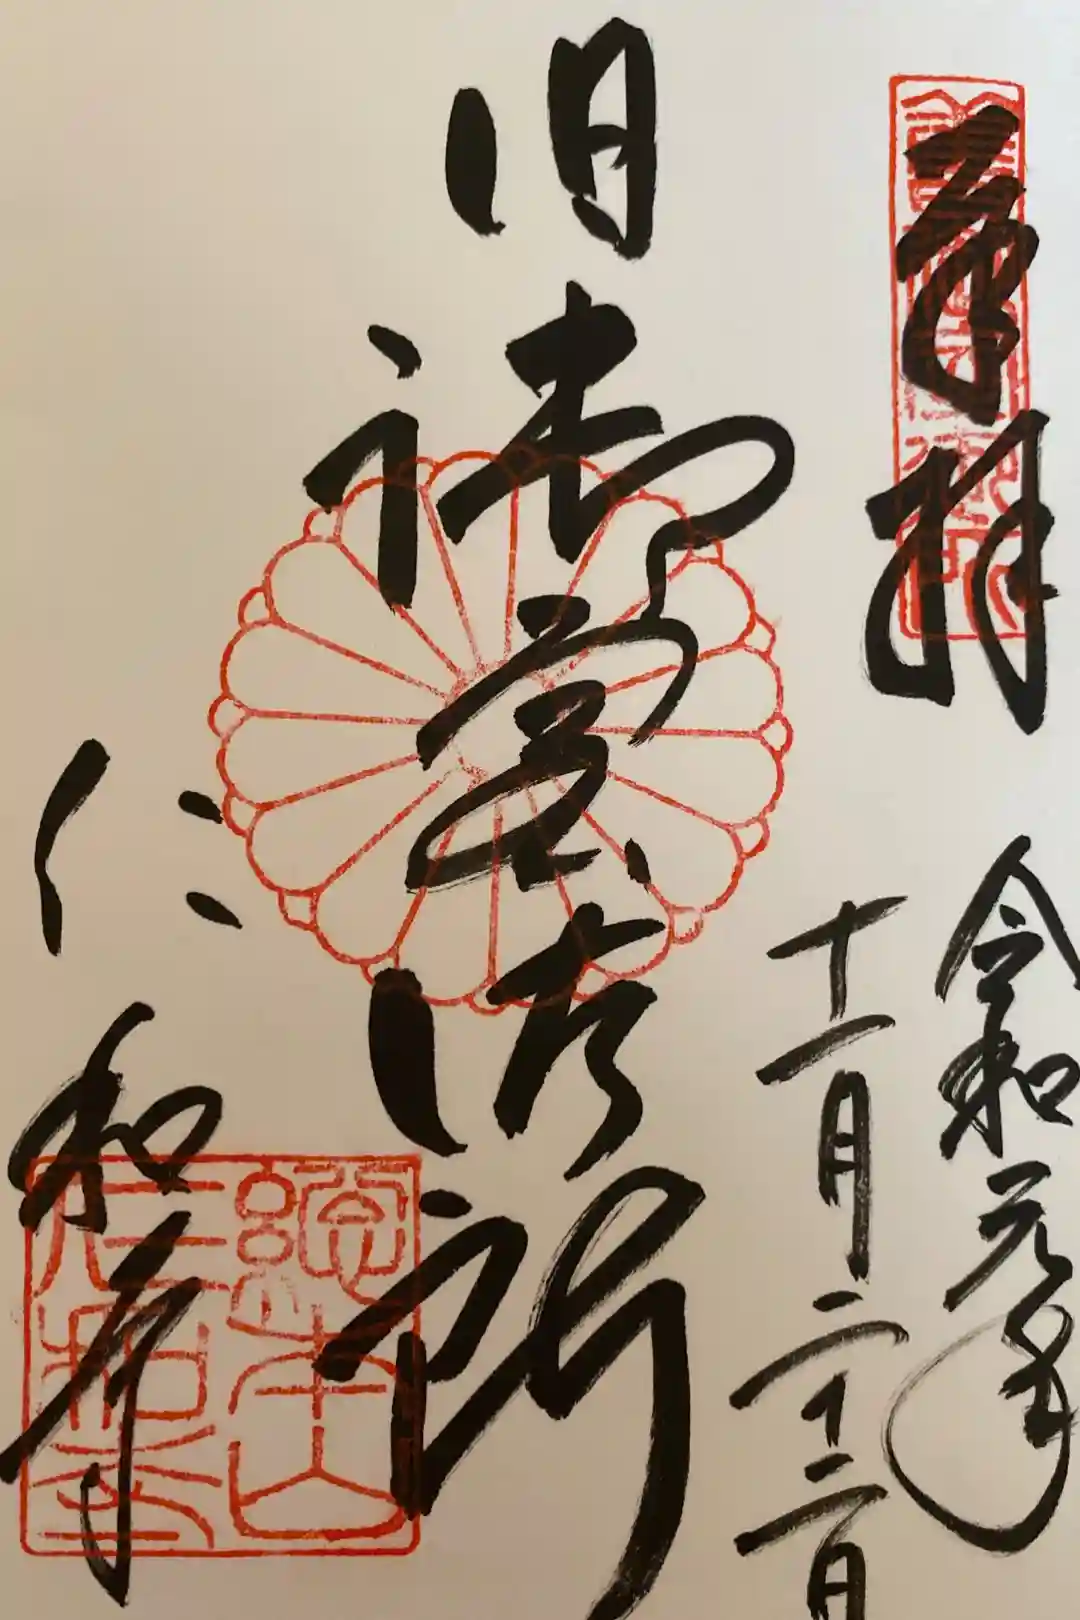 奉拝
令和元年
十一月二十二日
旧御室御所
仁和寺
總本山
仁和寺